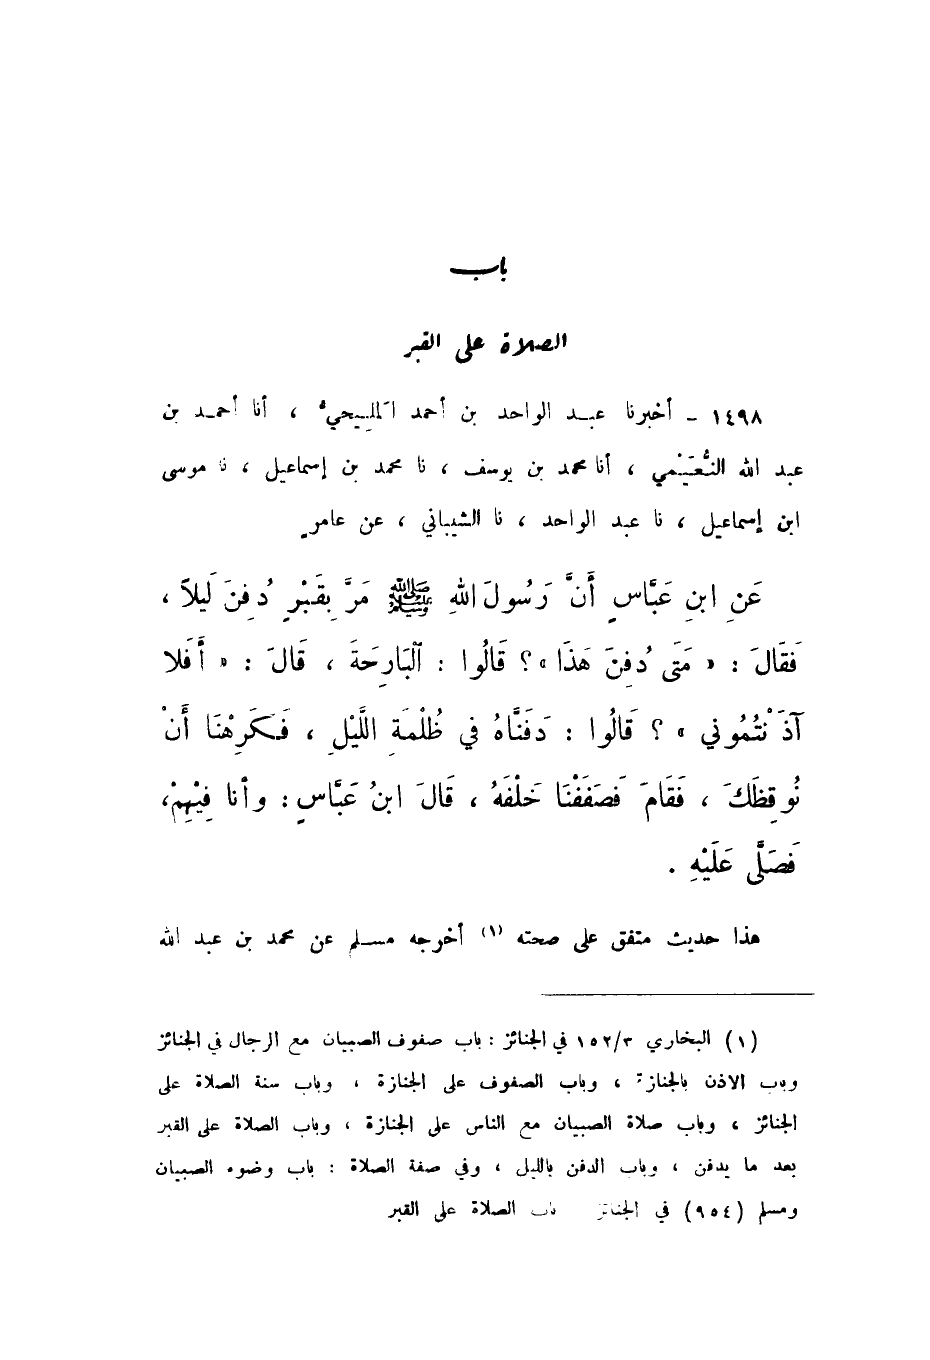 باب
الصلاة على القبر
١٤٩٨ - أخبرنا عبد الواحد بن أحمد المليحيُّ ، أنا أحمد بن
عبد الله النُّعَيْمي ، أنا محمد بن يوسف ، نا محمد بن إسماعيل ، نا موسى
ابن إسماعيل ، نا عبد الواحد ، نا الشيباني ، عن عامرٍ
عَنِ ابنِ عَبَّاسٍ أَنَّ رَسُولَ اللهِ ﷺ مَرَّ بِقَبْرٍ دُفِنَ لَيلاً ،
فَقَالَ : « مَتَى دُفِنَ هَذَا » ؟ قَالُوا : اٌلبَارِحَةَ ، قَالَ : « أَفَلا
آذَنْتُمُوني » ؟ قَالُوا : دَفَنَّاهُ في ظُلْمَةِ اللَّيْلِ ، فَكَرِهْنَا أَنْ
نُوقِظَكَ ، فَقَامَ فَصَفَفْنَا خَلْفَهُ ، قَالَ ابنُ عَبَّاسٍ : وأنا فِيْهِمْ،
فَصَلَّى عَلَيْهِ .
هذا حديث متفق على صحته (١) أخرجه مسلم عن محمد بن عبد الله
(١) البخاري ١٥٢/٣ في الجنائز : باب صفوف الصبيان مع الرجال في الجنائز
وباب الاذن بالجنازة ، وباب الصفوف على الجنازة ، وباب سنة الصلاة على
الجنائز ، وباب صلاة الصبيان مع الناس على الجنازة ، وباب الصلاة على القبر
بعد ما يدفن ، وباب الدفن بالليل ، وفي صفة الصلاة : باب وضوء الصبيان
ومسلم (٩٥٤) في الجنائز باب الصلاة على القبر